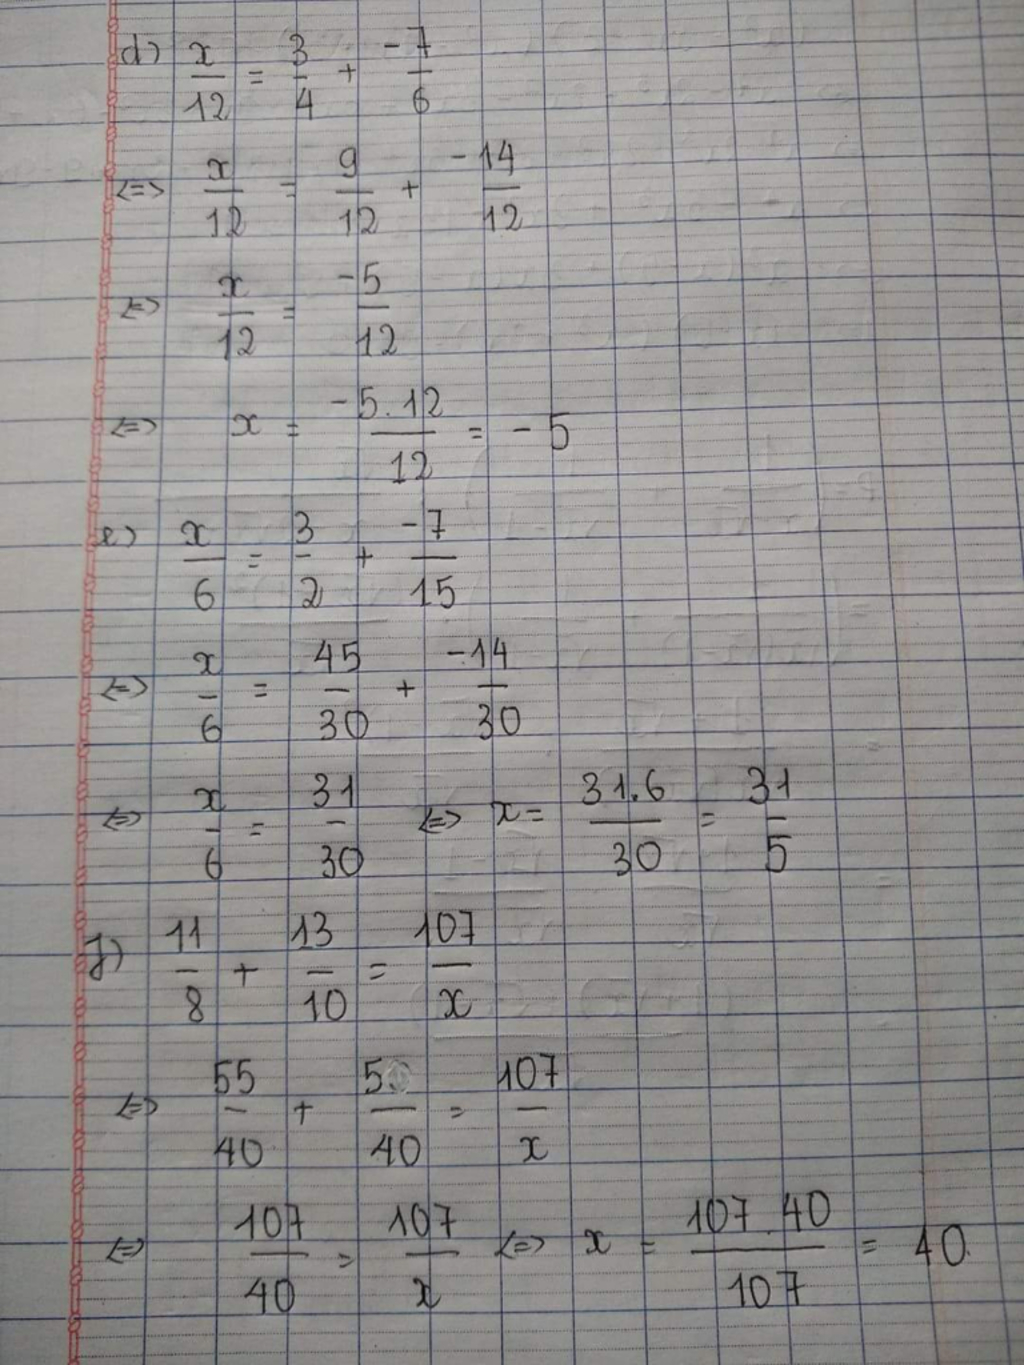 d) x/12 = 3/4 + -7/6
<=> x/12 = 9/12 + -14/12
<=> x/12 = -5/12
<=> x = -5.12/12 = -5
e) x/6 = 3/2 + -7/15
<=> x/6 = 45/30 + -14/30
<=> x/6 = 31/30 <=> x = 31.6/30 = 31/5
f) 11/8 + 13/10 = 107/x
<=> 55/40 + /40 = 107/x
<=> 107/40 = 107/x <=> x = 107.40/107 = 40